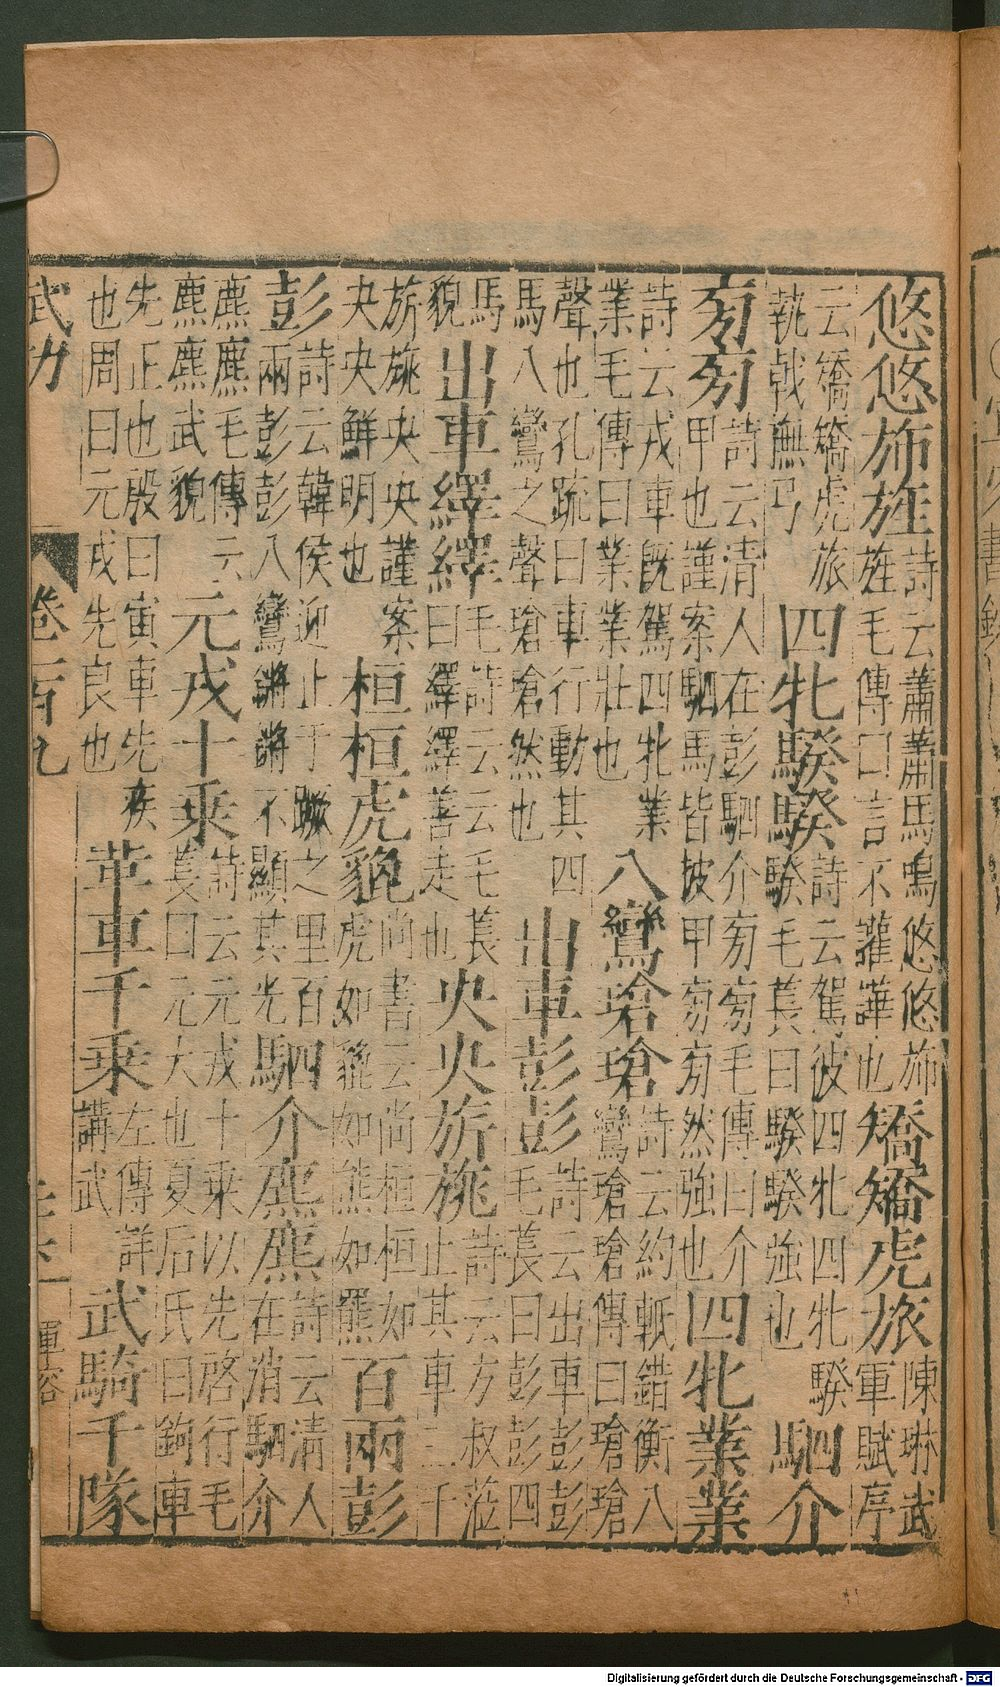 悠悠斾旌詩云蕭蕭馬鳴悠悠斾旌毛傳曰言不讙譁也矯矯虎旅陳琳武軍賦序
云矯矯虎旅執戟撫弓四牡騤騤詩云駕彼四牡四牡騤騤毛萇曰騤騤強也駟介
㫄㫄詩云清人在彭駟介㫄㫄毛傳曰介甲也謹案駟馬皆披甲㫄㫄然強也四牡業業
詩云戎車既駕四牡業業毛傳曰業業壯也八鸞瑲瑲詩云約軝錯衡八鸞瑲瑲傳曰瑲瑲
聲也孔疏曰車行動其四馬八鸞之聲瑲瑲然也出車彭彭詩云出車彭彭毛萇曰彭彭四
馬貌出車繹繹毛詩云云毛萇曰繹繹善走也央央旂旐詩云方叔涖止其車三千
旂旐央央謹案央央鮮明也桓桓虎貔尚書云尚桓桓如虎如貔如熊如羆百兩彭
彭詩云韓侯迎止于蹶之里百兩彭彭八鸞鏘鏘不顯其光駟介麃麃詩云清人在消駟介
麃麃毛傳云麃麃武貌元戎十乘詩云元戎十乘以先啓行毛萇曰元大也夏后氏曰鉤車
先正也殷曰寅車先疾也周曰元戎先良也革車千乘左傳詳講武武騎千隊
武功 卷一百九 軍容
Digitalisierung gefördert durch die Deutsche Forschungsgemeinschaft - DFG